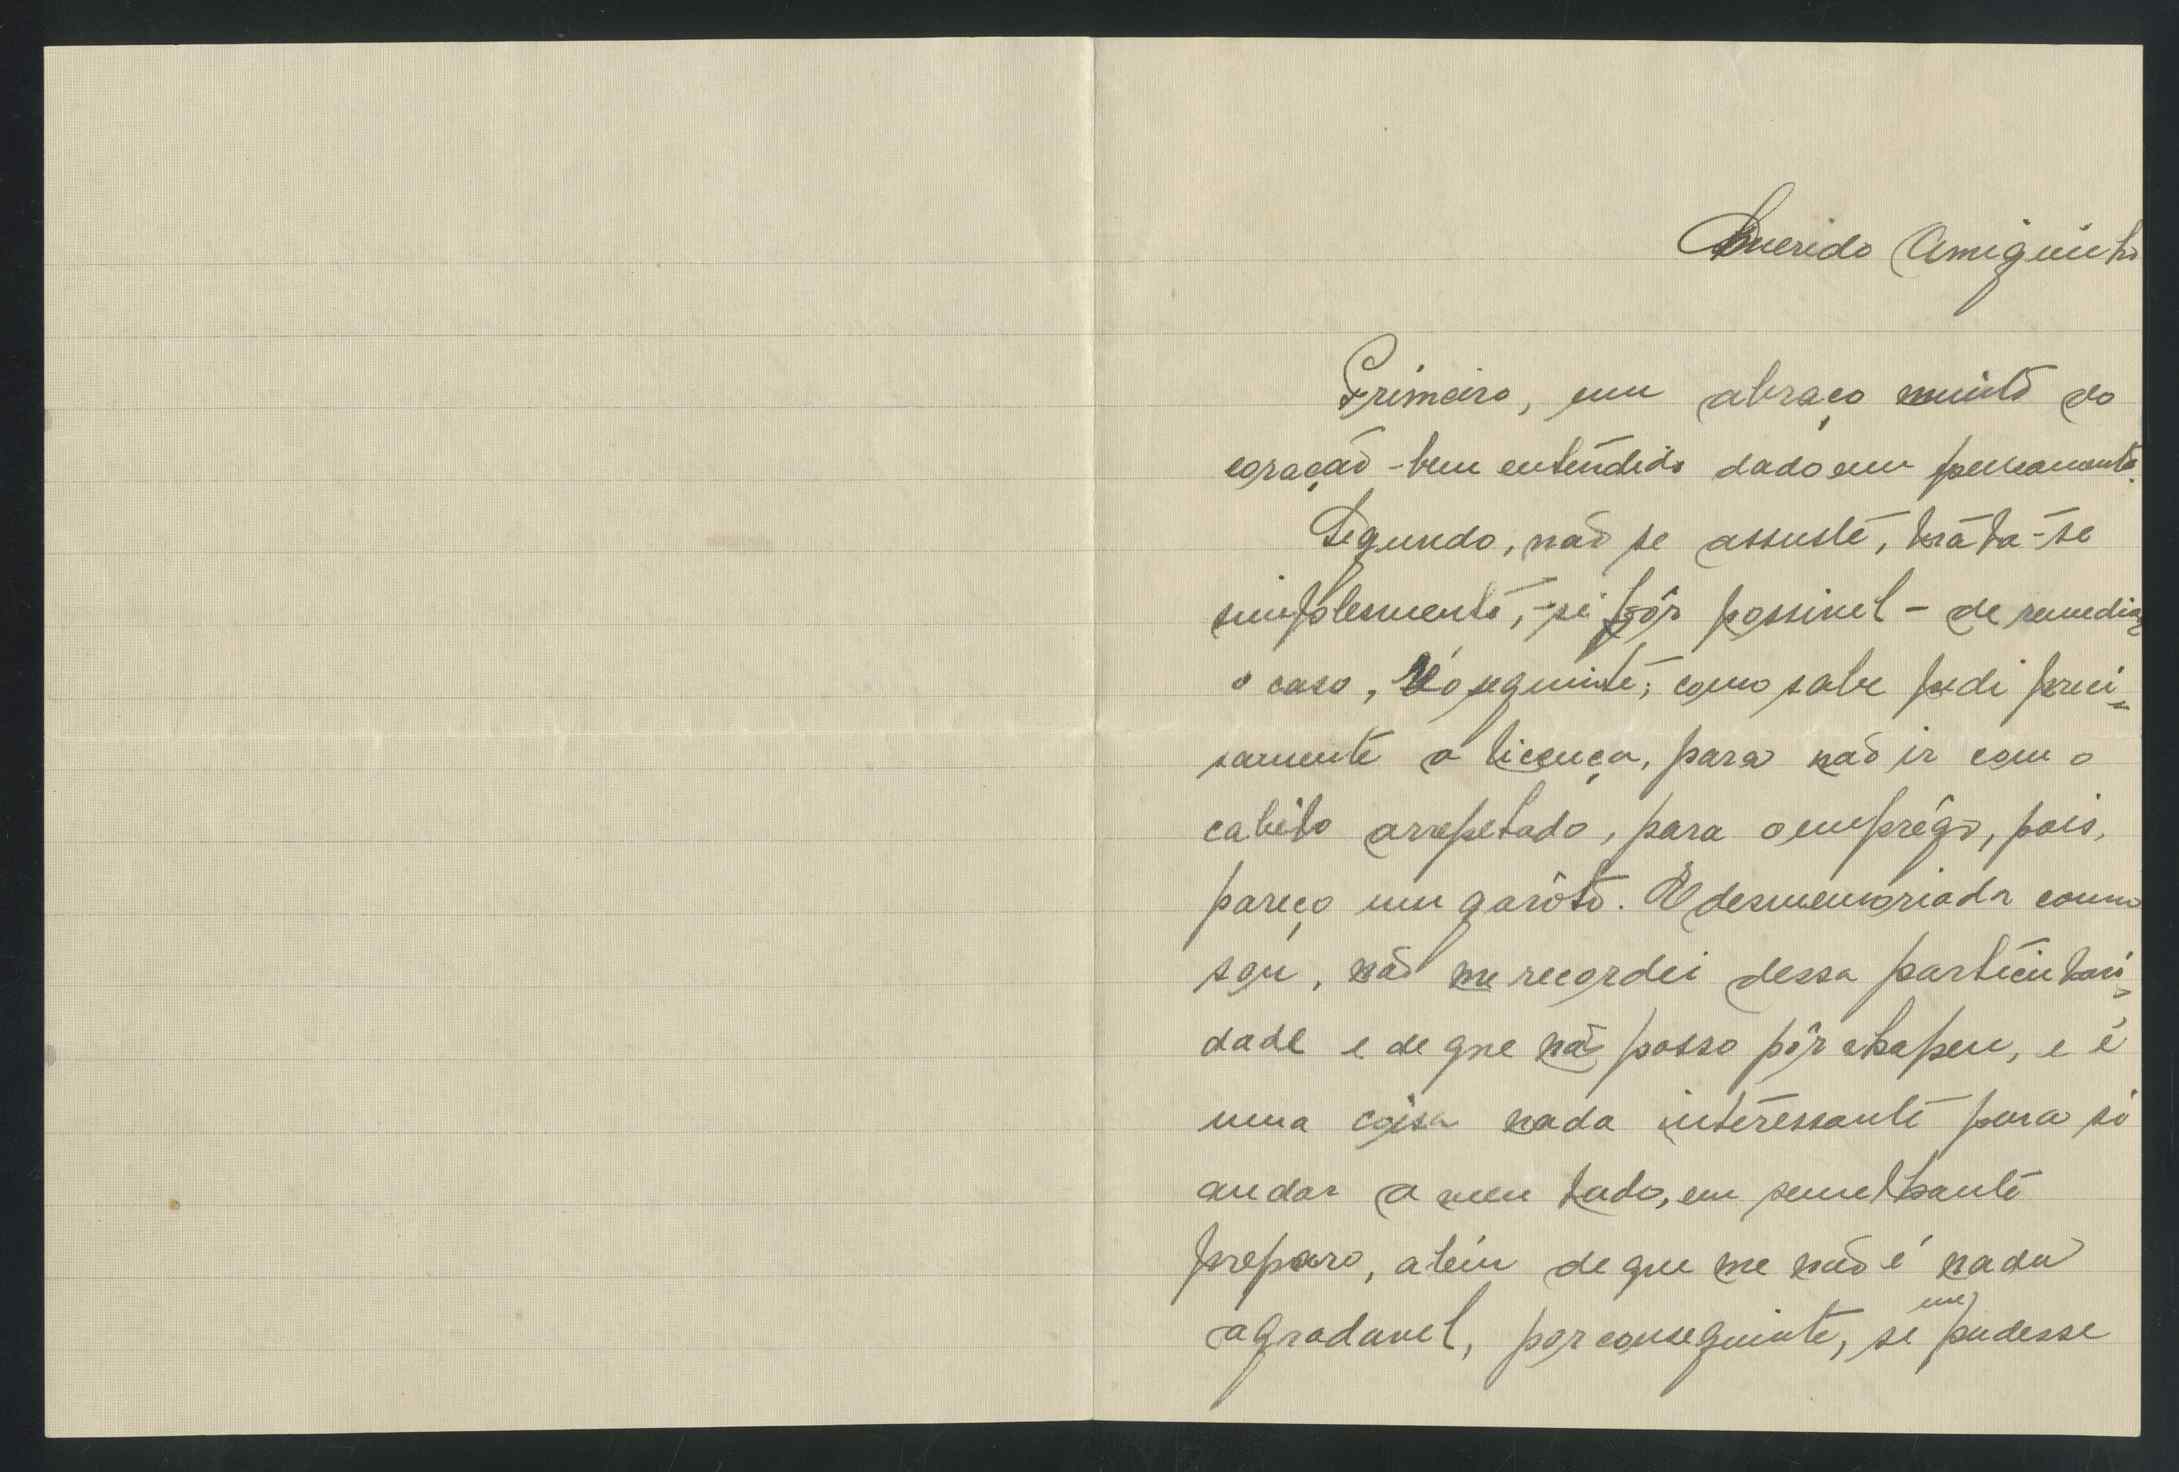 Querido Amiguinho
Primeiro, um abraço muito do
coração - bem entendido dado em pensamento.
Segundo, não se assuste, trata-se
simplesmente, - si fôr possivel - de remediar
o caso, é o seguinte; como sabe pedi preci-
samente a licença, para não ir com o
cabelo arrepelado, para o emprêgo, pois,
pareço um garôto. E desmemoriada como
sou, não me recordei dessa particulari-
dade e de que não posso pôr chapeu, e é
uma coisa nada interessante para si
andar a meu lado, em semelhante
preparo, alêm de que me não é nada
agradavel, por conseguinte, se me pudesse